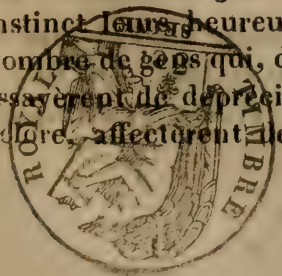 nstinct leurs heureu
ombre de gens qui, d
ssayèrent de dépréci
clore, affectèrent de
TIMBRE ROYAL